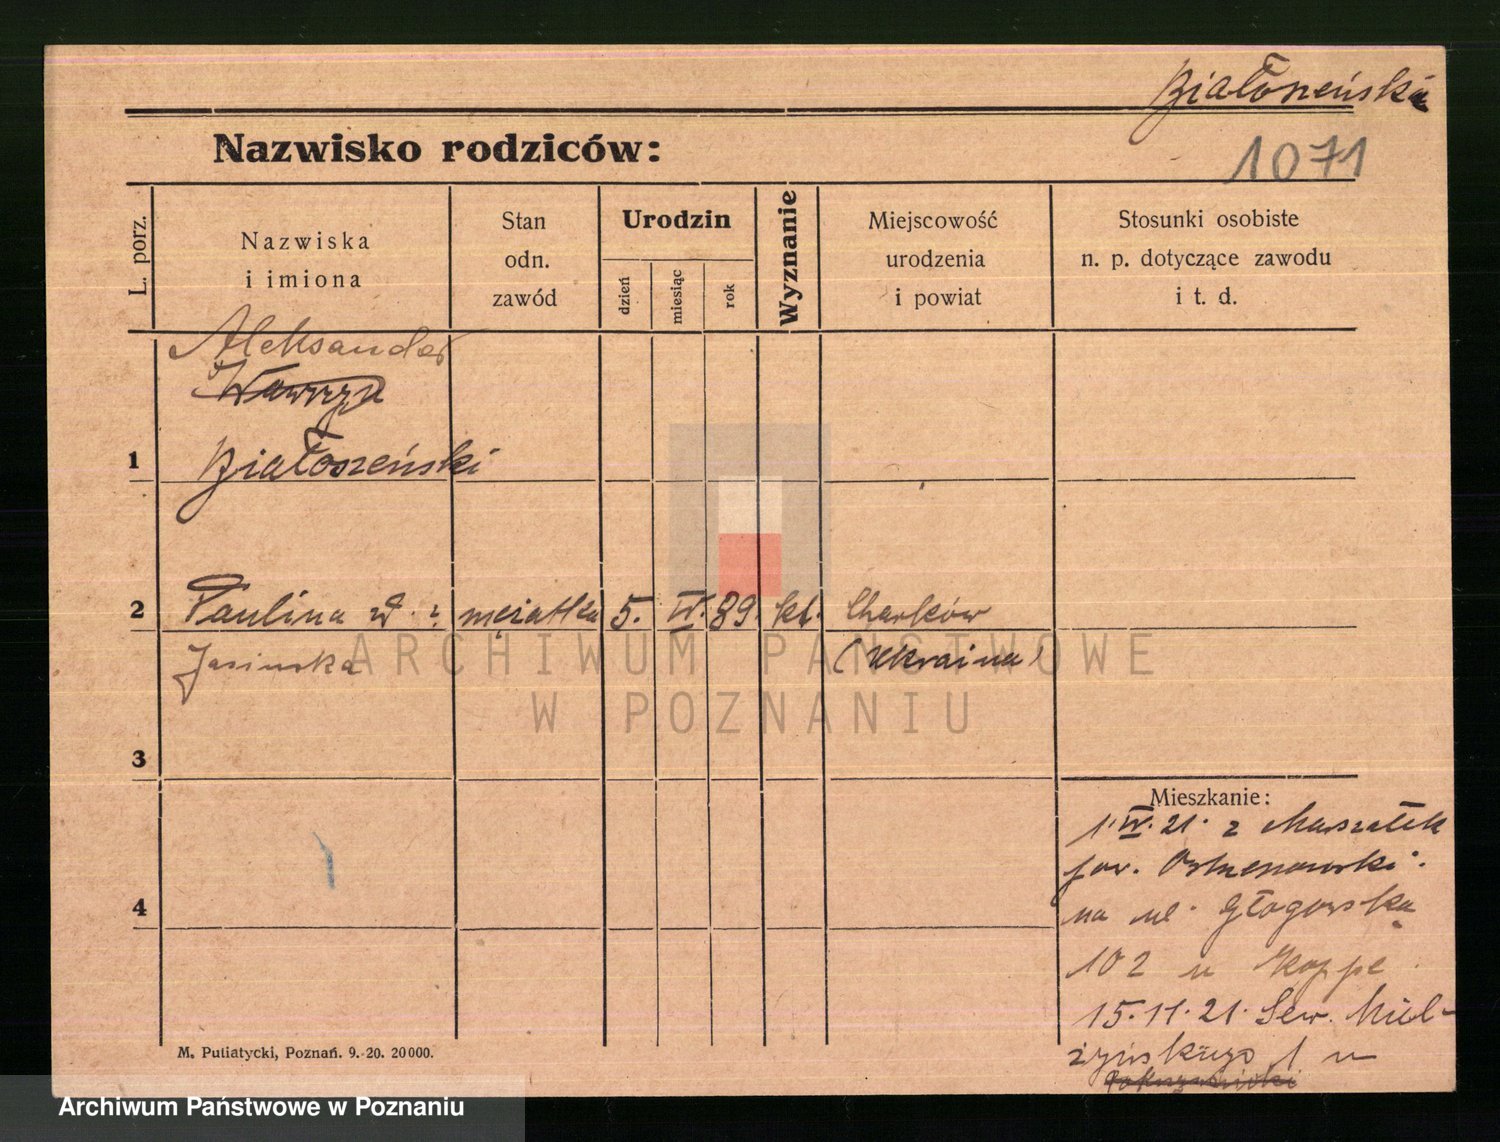 Białoszeńska
1071
Nazwisko rodziców:
L. porz.
Nazwiska
i imiona
Stan
odn.
zawód
Urodzin
dzień
miesiąc
rok
Wyznanie
Miejscowość
urodzenia
i powiat
Stosunki osobiste
n. p. dotyczące zawodu
i t. d.
Aleksander
Wawrzyn
1 Białoszeński
2 Paulina mężatka 5. IV. 89. kt. Charków
Jasinska (Ukraina)
ARCHIWUM PAŃSTWOWE
W POZNANIU
3
Mieszkanie:
1.IV.21. z Marszałek
pow. Ostrzeszowski.
4
na ul. Głogowska
102 u Koppe
15.11.21. Sew. Miel-
żyńskiego 1 u
M. Putiatycki, Poznań. 9.-20. 20000.
Archiwum Państwowe w Poznaniu